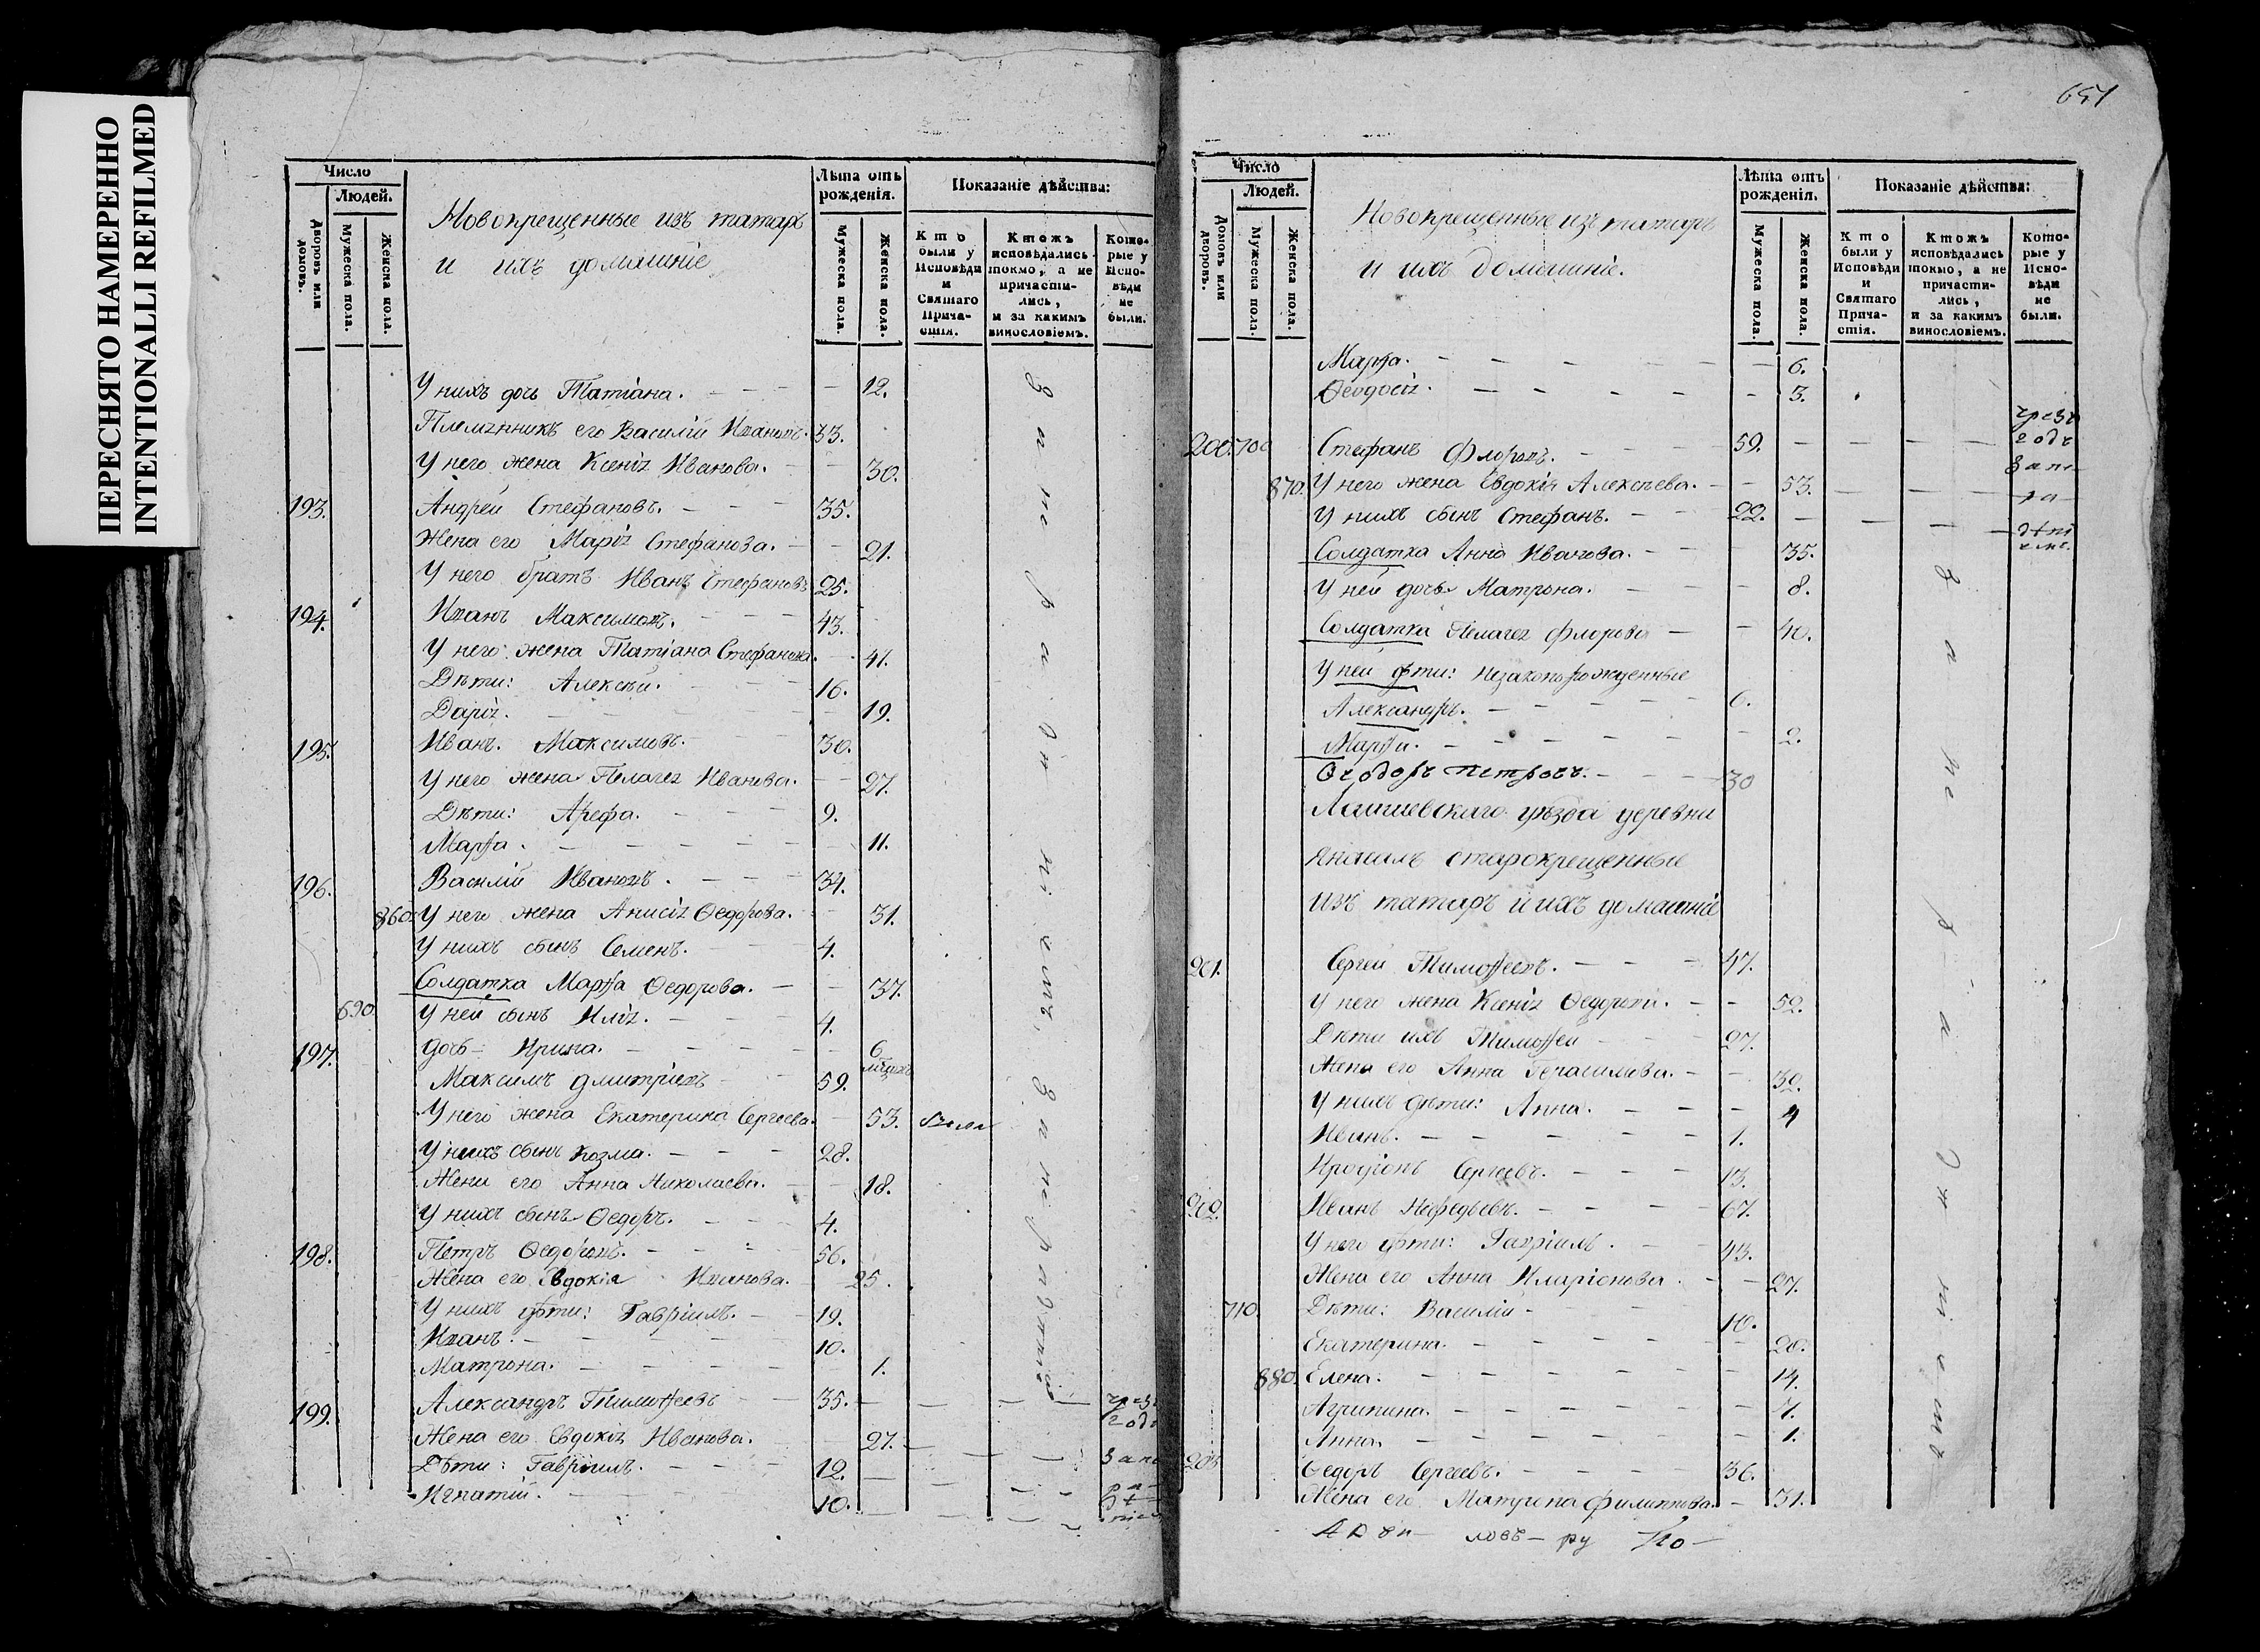 ПЕРЕСНЯТО НАМЕРЕННО
INTENTIONALLI REFILMED
Число
Людей.
Дворовъ или домовъ.
Мужеска пола.
Женска пола.
Новокрещенные изъ татаръ
и ихъ домашніе
Лѣта отъ рожденія.
Мужеска пола.
Женска пола.
Показаніе дѣйства:
Кто были у Исповѣди и Святаго Прича-стія.
Ктожъ исповѣдались токмо, а не причасти-лись, и за какимъ винословіемъ.
Кото-рые у Испо-вѣди не были.
У нихъ дочь Татіана. 12.
Племянникъ его Василій Ивановъ. 33.
У него жена Ксенія Иванова. 30.
193. Андрей Стефановъ. 35.
Жена его Марія Стефанова. 21.
У него братъ Иванъ Стефановъ 25.
194. Иванъ Максимовъ. 43.
У него жена Татіана Стефанова. 41.
Дѣти: Алексѣй. 16.
Дарія. 19.
195. Иванъ Максимовъ. 30.
У него жена Пелагея Иванова. 27.
Дѣти: Арефа. 9.
Марѳа. 11.
196. Василій Ивановъ. 34.
860. У него жена Анисія Ѳедорова. 31.
У нихъ сынъ Семенъ. 4.
Солдатка Марѳа Ѳедорова. 37.
690. У ней сынъ Илія. 4.
дочь Ирина. 6
197. Максимъ Дмитріевъ 59.
У него жена Екатерина Сергеева. 53. были
У нихъ сынъ Козма. 28.
Жена его Анна Николаева. 18.
У нихъ сынъ Ѳедоръ. 4.
198. Петръ Ѳедоровъ. 56.
Жена его Евдокія Иванова. 25.
У нихъ дѣти: Гавріилъ. 19.
Иванъ. 10.
Матрона. 1.
199. Александръ Тимоѳеевъ 35. чрезъ годъ
Жена его Евдокія Иванова. 27.
Дѣти: Гавріилъ. 12.
Игнатій. 10.
за нерадѣніемъ
651
Число
Людей.
Домовъ или дворовъ.
Мужеска пола.
Женска пола.
Новокрещенные изъ татаръ
и ихъ домашніе.
Лѣта отъ рожденія.
Мужеска пола.
Женска пола.
Показаніе дѣйства:
Кто были у Исповѣди и Святаго Прича-стія.
Ктожъ исповѣдались токмо, а не причасти-лись, и за какимъ винословіемъ.
Кото-рые у Испо-вѣди не были.
Марѳа. 6.
Ѳеодосія. 3.
200. 700 Стефанъ Флоровъ. 59. чрезъ годъ
870. У него жена Евдокія Алексѣева. 53.
У нихъ сынъ Стефанъ. 22.
Солдатка Анна Иванова. 35.
У ней дочь Матрона. 8.
Солдатка Пелагея Флорова 40.
У ней дѣти: незаконорожденные
Александръ. 6.
Марѳа. 2.
Ѳеодоръ Петровъ. 30
Лаишевскаго уѣзда деревни
старокрещенные
изъ татаръ и ихъ домашніе
201. Сергей Тимоѳеевъ. 47.
У него жена Ксенія Ѳедорова. 52.
Дѣти ихъ Тимоѳей 27.
Жена его Анна Герасимова. 32.
У нихъ дѣти: Анна. 4
Иванъ. 1.
Иродіонъ Сергеевъ. 13.
202. Иванъ Нефедьевъ. 67.
У него дѣти: Гавріилъ. 43.
Жена его Анна Иларіонова. 27.
710. Дѣти: Василій 10.
Екатерина. 20.
880. Елена. 14.
Агрипина. 7.
Анна. 1.
203 Ѳедоръ Сергеевъ. 36.
Жена его Матрена Филиппова. 31.
за нерадѣніемъ